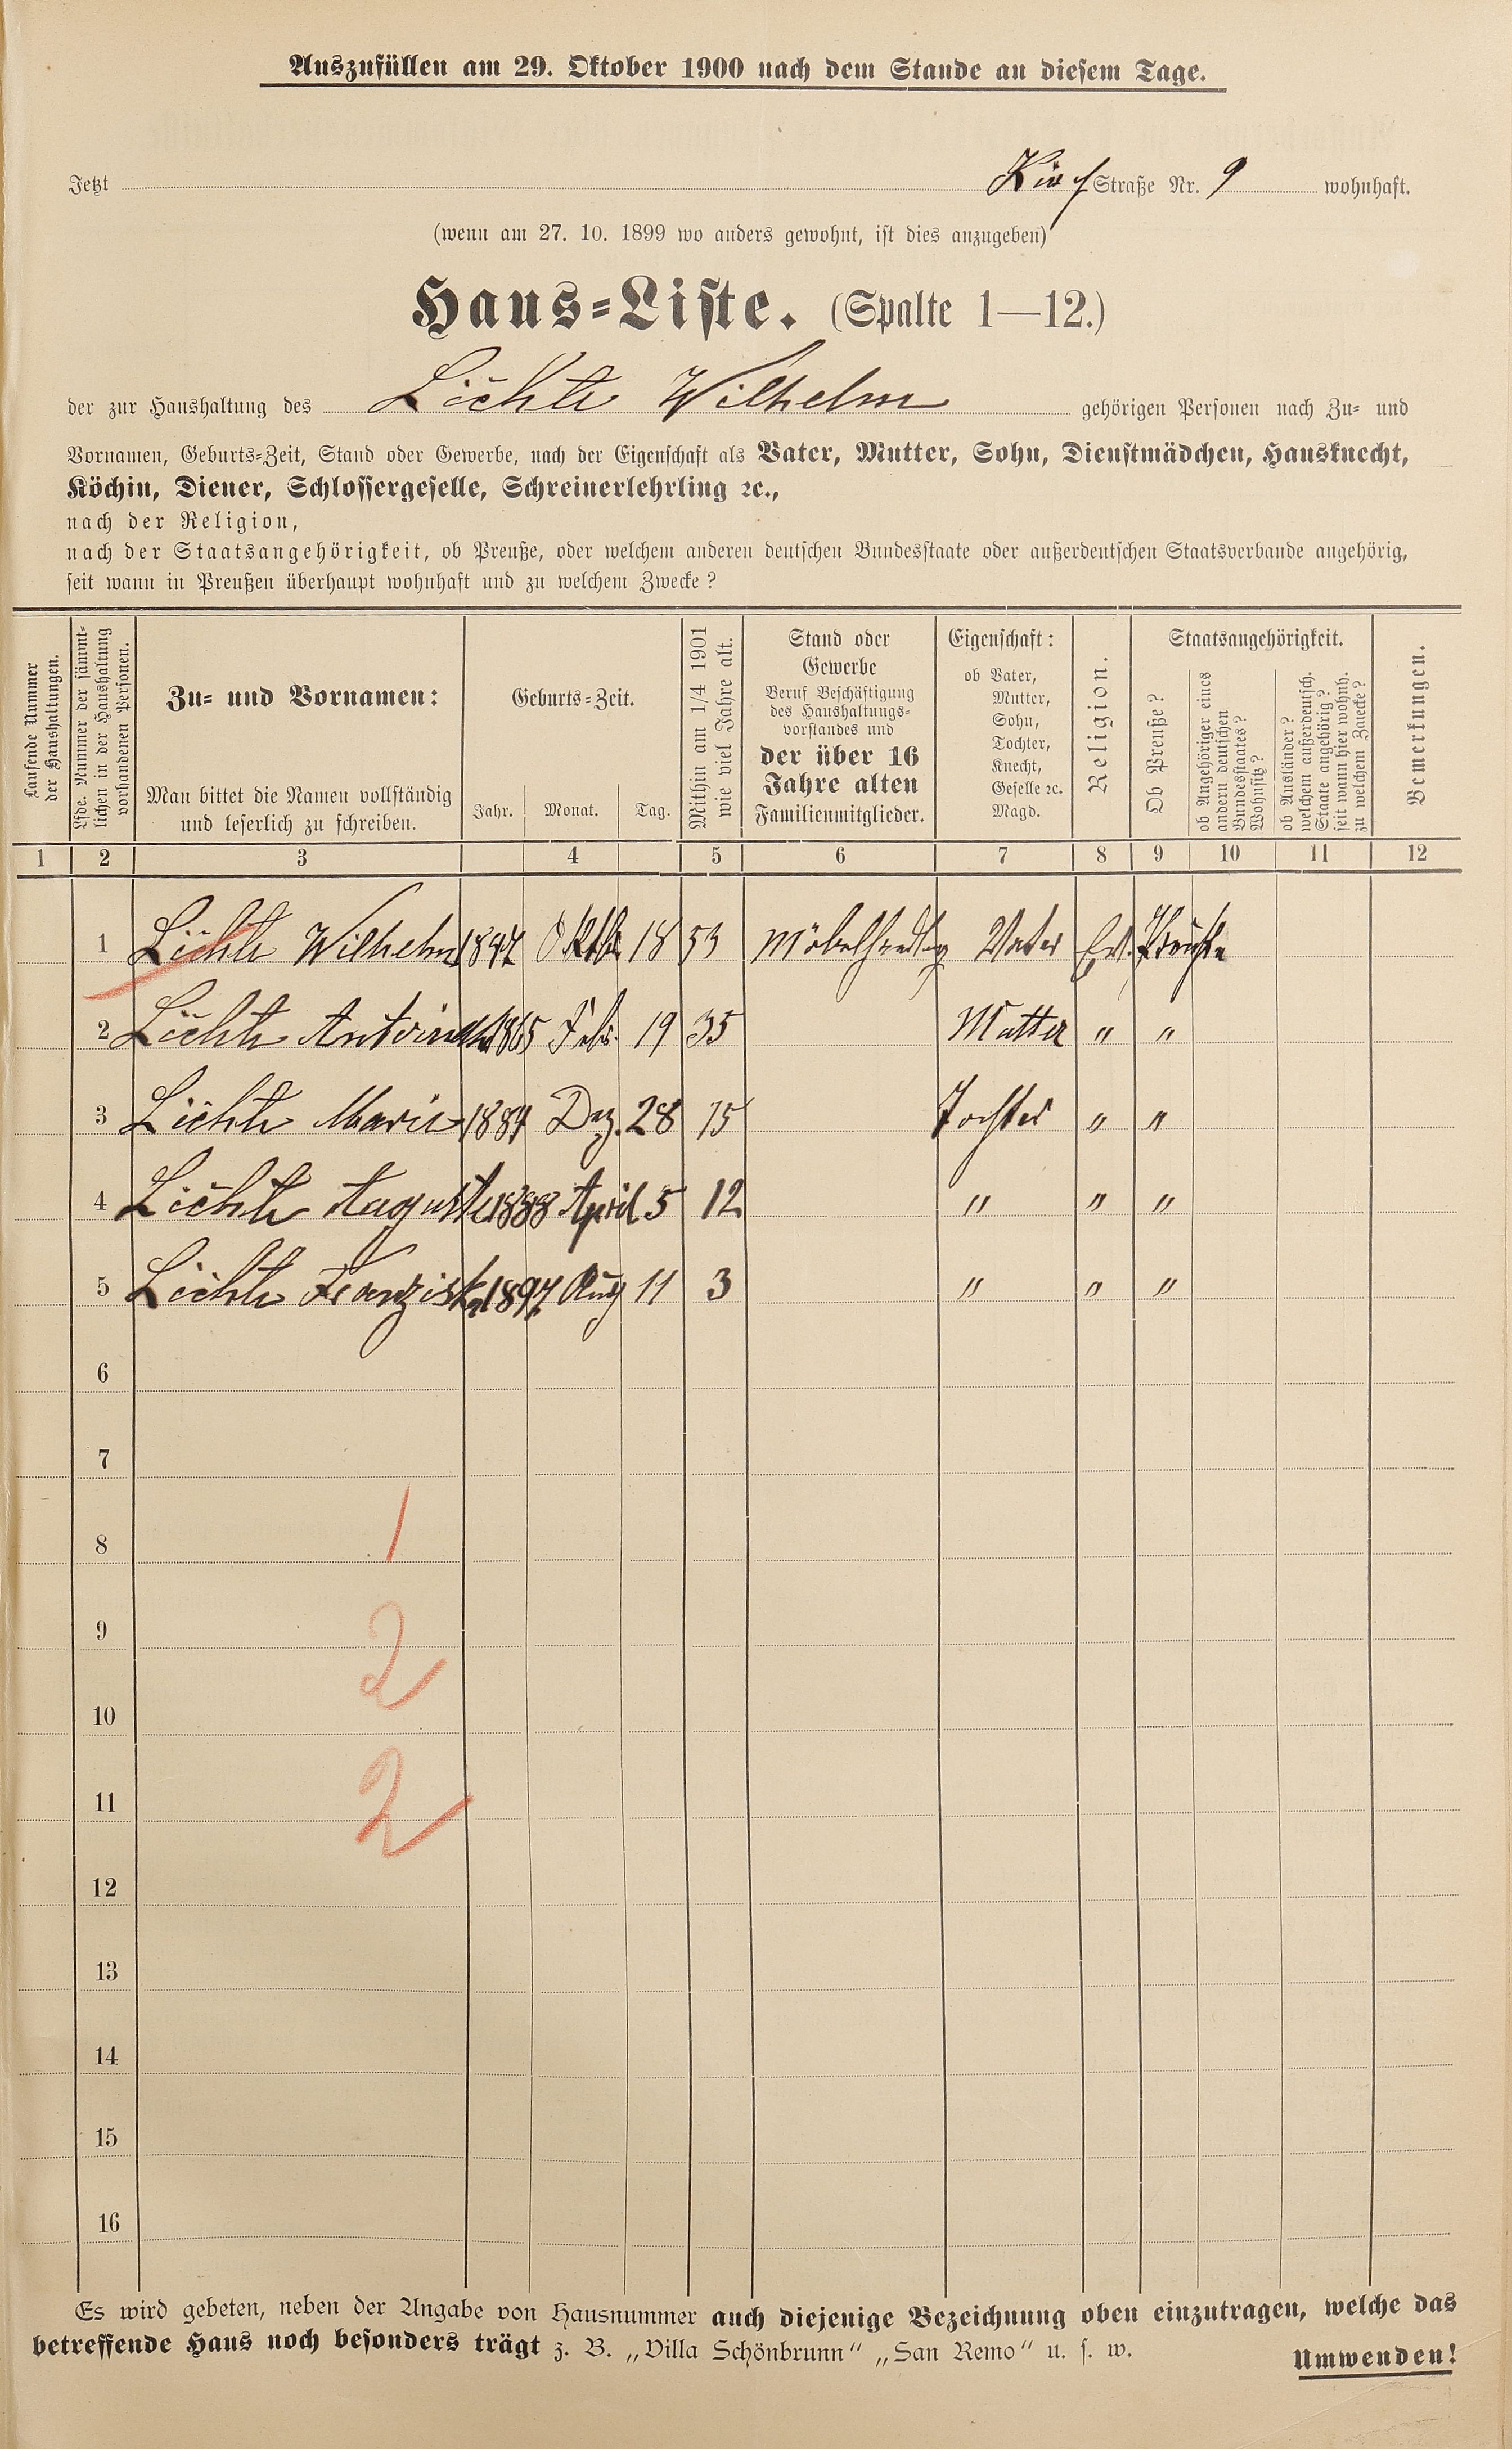 Auszufüllen am 29. Oktober 1900 nach dem Stande an diesem Tage.
Jetzt Kirch Straße Nr. 9 wohnhaft.
(wenn am 27. 10. 1899 wo anders gewohnt, ist dies anzugeben)
Haus-Liste. (Spalte 1—12.)
der zur Haushaltung des Löchte Wilhelm gehörigen Personen nach Zu- und
Vornamen, Geburts-Zeit, Stand oder Gewerbe, nach der Eigenschaft als Vater, Mutter, Sohn, Dienstmädchen, Hausknecht,
Köchin, Diener, Schlossergeselle, Schreinerlehrling ꝛc.,
nach der Religion,
nach der Staatsangehörigkeit, ob Preuße, oder welchem anderen deutschen Bundesstaate oder außerdeutschen Staatsverbande angehörig,
seit wann in Preußen überhaupt wohnhaft und zu welchem Zwecke?
Laufende Nummer
der Haushaltungen.
Lfde. Nummer der sämmt-
lichen in der Haushaltung
vorhandenen Personen.
Zu- und Vornamen:
Man bittet die Namen vollständig
und leserlich zu schreiben.
Geburts-Zeit.
Jahr. Monat. Tag.
Mithin am 1/4 1901
wie viel Jahre alt.
Stand oder
Gewerbe
Beruf Beschäftigung
des Haushaltungs-
vorstandes und
der über 16
Jahre alten
Familienmitglieder.
Eigenschaft:
ob Vater,
Mutter,
Sohn,
Tochter,
Knecht,
Geselle ꝛc.
Magd.
Religion.
Staatsangehörigkeit.
Ob Preuße?
ob Angehöriger eines
andern deutschen
Bundesstaates?
Wohnsitz?
ob Ausländer?
welchem außerdeutsch.
Staate angehörig?
seit wann hier wohnh.
zu welchem Zwecke?
Bemerkungen.
1 2 3 4 5 6 7 8 9 10 11 12
1 Löchte Wilhelm 1847 Oktb. 18 53 Möbelhandlg Vater Ev. Preuße
2 Löchte Antoinette 1865 Feb. 19 35 Mutter " "
3 Löchte Marie 1884 Dez. 28 15 Tochter " "
4 Löchte Auguste 1888 April 5 12 " " "
5 Löchte Franziska 1897 Aug 11 3 " " "
6
7
8 1
9 2
10
11 2
12
13
14
15
16
Es wird gebeten, neben der Angabe von Hausnummer auch diejenige Bezeichnung oben einzutragen, welche das
betreffende Haus noch besonders trägt z. B. „Villa Schönbrunn“ „San Remo“ u. s. w.
Umwenden!